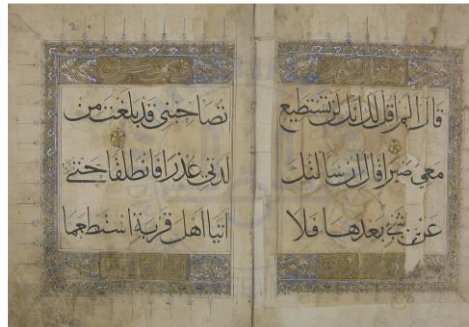 قال الم اقل لك انك لن تستطيع
معي صبرا قال ان سالتك
عن شيء بعدها فلا
تصاحبني قد بلغت من
لدني عذرا فانطلقا حتى
اتيا اهل قرية استطعما